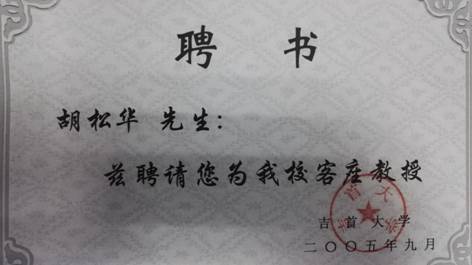 聘 书
胡松华 先生：
兹聘请您为我校客座教授
吉首大学
二〇〇五年九月